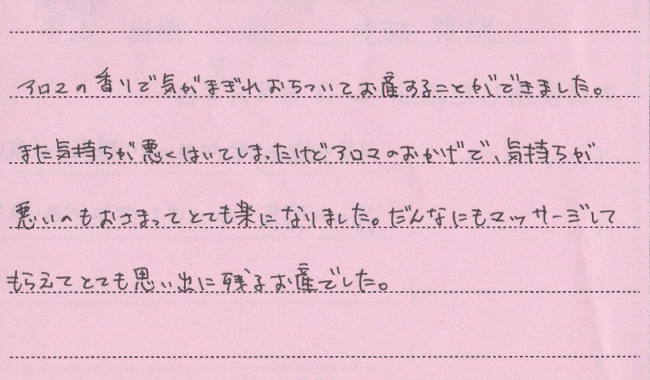 アロマの香りで気がまぎれおちついてお産することができました。
また気持ちが悪くはいてしまったけどアロマのおかげで、気持ちが
悪いのもおさまってとても楽になりました。だんなにもマッサージして
もらえてとても思い出に残るお産でした。